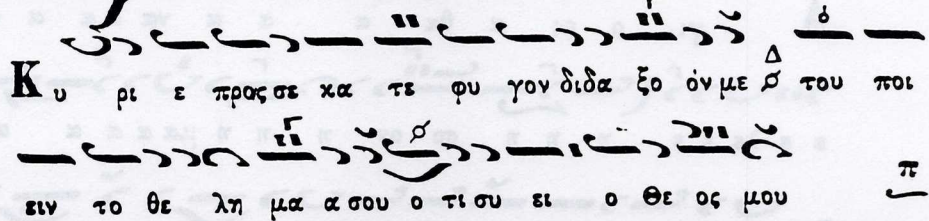 Κυ ρι ε προς σε κα τε φυ γον διδα ξο όν με Δ του ποι
ειν το θε λη μα α σου ο τι συ ει ο Θε ος μου π